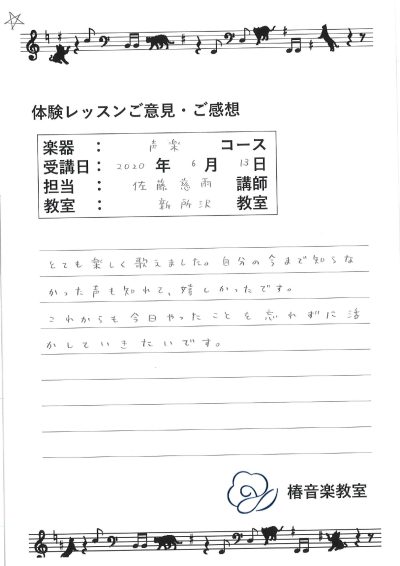 体験レッスンご意見・ご感想
楽器 : 声楽 コース
受講日: 2020 年 6 月 13 日
担当 : 佐藤慈雨 講師
教室 : 新所沢 教室
とても楽しく歌えました。自分の今まで知らな
かった声も知れて、嬉しかったです。
これからも今日やったことを忘れずに活
かしていきたいです。
椿音楽教室